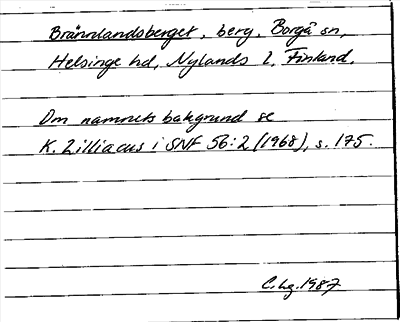 Brännlandsberget, berg, Borgå sn,
Helsinge hd, Nylands l, Finland.
Om namnets bakgrund se
K. Zilliacus i SNF 56:2 (1968), s. 175.
C. hg. 1987